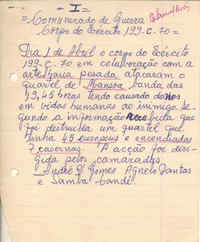 = I =
= Comunicado de Guerra
Corpo do Exército 199-C-70 =
Dia 1 de Abril o corpo do Exército
199-C-70 em colaboração com a
artelharia pesada atacaram o
quartel de Mansoa banda das
45 horas tendo causado danos
em vidas humanas ao inimigo se-
gundo a informação recebida que
foi destruida um quartel que
tinha 45 europeus e encendiadas
7 casernas. A acção foi diri-
gida pelos camaradas
André P. Gomes Agnelo Dantas
e Samba